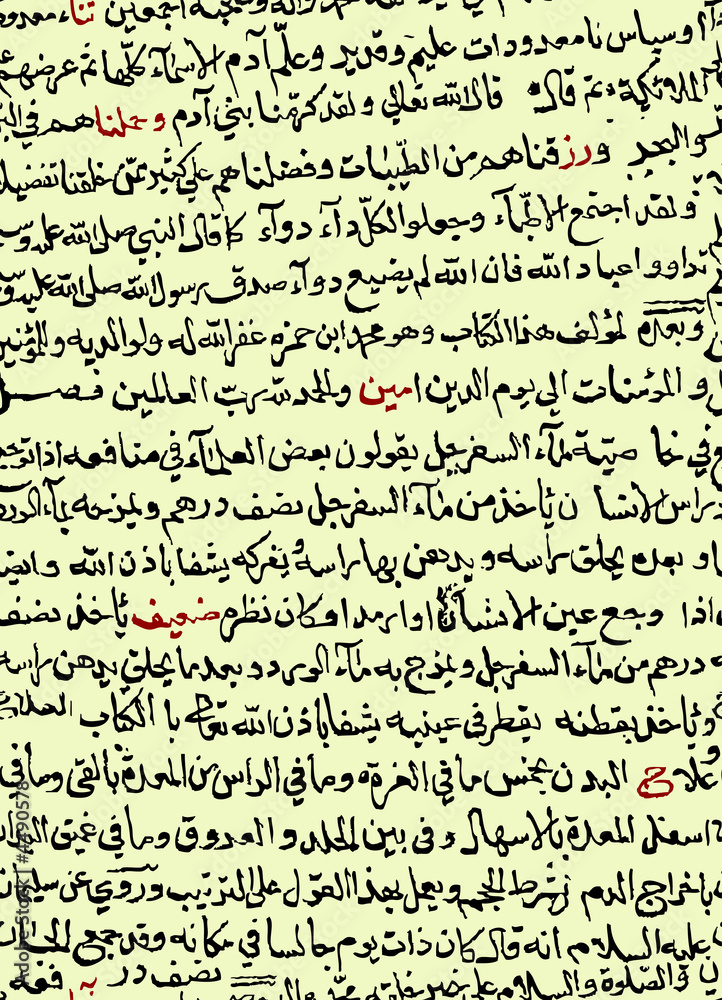 وصحبه اجمعين ثناء معدود
وسپاس نامعدودات عليم وقدير وعلّم آدم الاسماء كلّها ثم عرضهم
الملائكة ثمّ قال قال الله تعالي ولقد كرّمنا بني آدم وحملناهم في البر
والبحر ورزقناهم من الطّيّبات وفضلناهم علي كثير ممّن خلقنا تفضيلا
ولقد اجتمع الاطبّآء وجعلوا لكلّ دآء دوآء كما قال النبي صلي الله عليه وس
تداووا عباد الله فان الله لم يضيع دوآء صدق رسول الله صلي الله عليه وس
وبعده لمؤلف هذا الكتاب وهو محمد ابن حمزه غفر الله له ولوالديه وللمؤمنين
و المؤمنات الي يوم الدين امين والحمد لله ربّ العالمين فصل
في خاصيّة مآء السفرجل يقولون بعض العلمآء في منافعه اذا توجع
راس الانسان يأخذ من مآء السفرجل نصف درهم ويمزجه بمآء الورد
و بعده يحلق رأسه ويدهن بها راسه ويفركه يشفا باذن الله وايضا
اذا وجع عين الانسان او ارمدا وكان نظره ضعيف يأخذ نصف
درهم من مآء السفرجل ويمزج به مآء الورد وبعد ما يحلق يدهن راسه
ويأخذ بقطنه يقطر في عينيه يشفا باذن الله تعالي با الكتاب العلاج
علاج البدن بجنس ما في الغرة وما في الراس من المعدة بالقي وما في
اسفل المعدة بالاسهال وفي بين الجلد والعروق وما في عميق
باخراج الدم بشرط الحجم ويعمل بهذا القول علي الترتيب وروي عن سليمان
عليه السلام انه قال كان ذات يوم جالسا في مكانه وقد جمع
والصلوة والسلام علي خير خلقه نصف در
#4890578
Adobe Stock